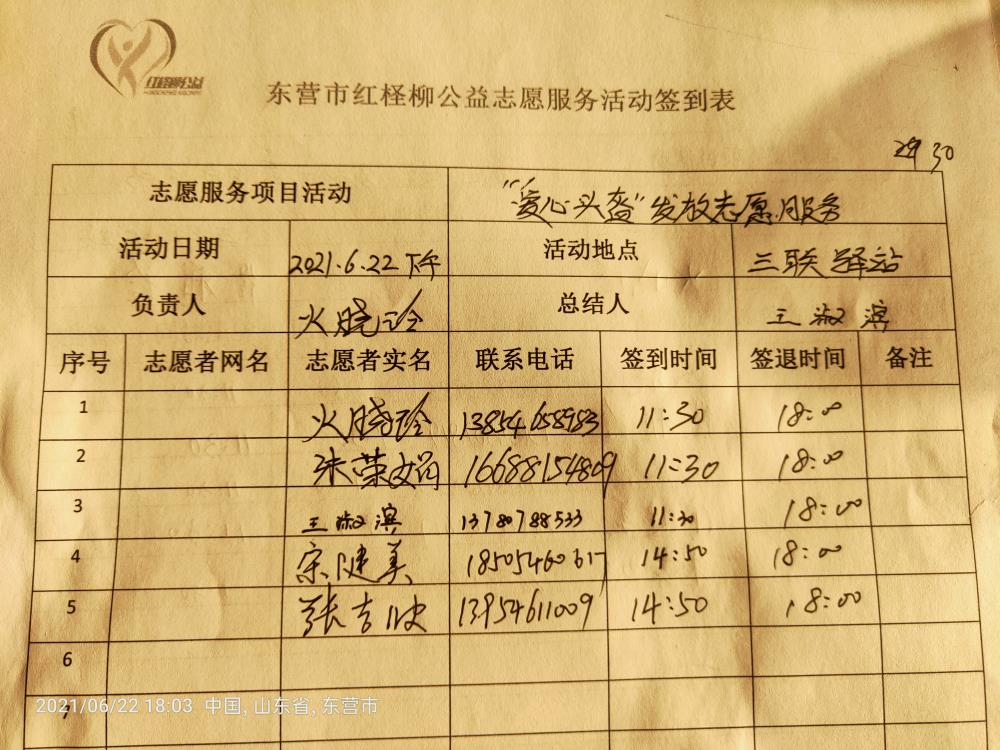 红柽柳公益
东营市红柽柳公益志愿服务活动签到表
30
志愿服务项目活动 “爱心头盔”发放志愿服务
活动日期 2021.6.22下午 活动地点 三联驿站
负责人 火晓玲 总结人 王淑滨
序号 志愿者网名 志愿者实名 联系电话 签到时间 签退时间 备注
1 火晓玲 13854658983 11:30 18:00
2 朱荣娟 16688154809 11:30 18:00
3 王淑滨 13780788533 11:30 18:00
4 宋健美 18505460617 14:50 18:00
5 张吉欣 13954611009 14:50 18:00
6
7
2021/06/22 18:03 中国, 山东省, 东营市